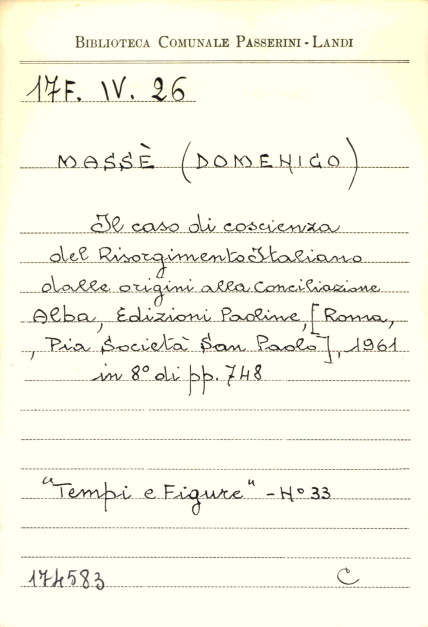 BIBLIOTECA COMUNALE PASSERINI - LANDI
17F. IV. 26
MASSÈ (DOMENICO)
Il caso di coscienza
del Risorgimento Italiano
dalle origini alla Conciliazione
Alba, Edizioni Paoline, [Roma,
, Pia Società San Paolo], 1961
in 8° di pp. 748
"Tempi e Figure" - N° 33
174583 C